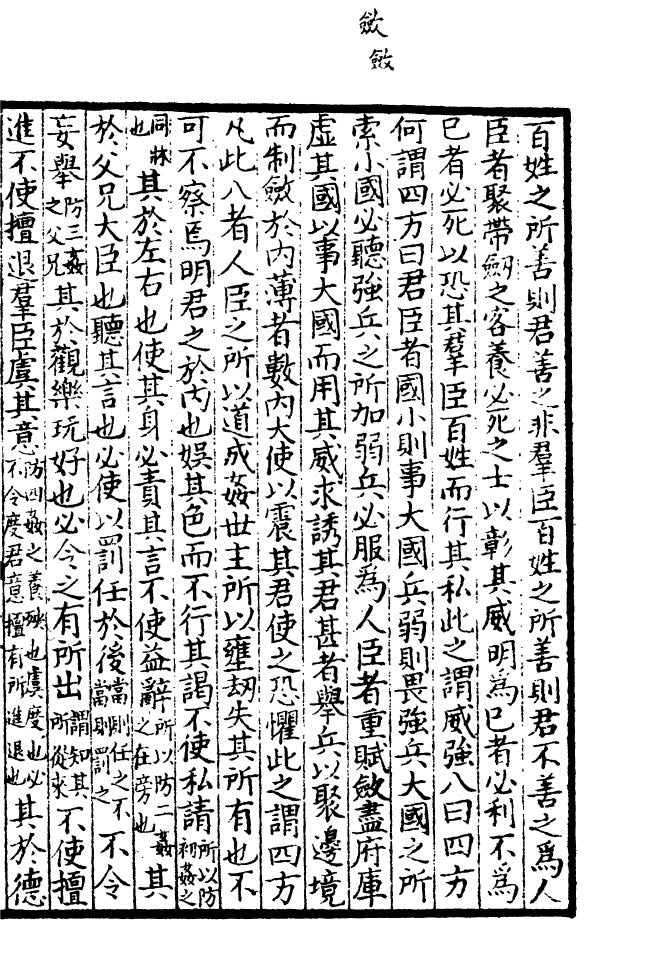 歛
斂
百姓之所善則君善之非羣臣百姓之所善則君不善之爲人
臣者聚帶劒之客養必死之士以彰其威明爲已者必利不爲
已者必死以恐其羣臣百姓而行其私此之謂威強八曰四方
何謂四方曰君臣者國小則事大國兵弱則畏強兵大國之所
索小國必聽強兵之所加弱兵必服爲人臣者重賦斂盡府庫
虛其國以事大國而用其威求誘其君甚者舉兵以聚邊境
而制斂於內薄者數內大使以震其君使之恐懼此之謂四方
凡此八者人臣之所以道成姦世主所以壅刼失其所有也不
可不察焉明君之於內也娛其色而不行其謁不使私請所以防初姦之
同牀也其於左右也使其身必責其言不使益辭所以防二姦之在旁也其
於父兄大臣也聽其言也必使以罰任於後當則任之不當則罰之不令
妄舉防三姦之父兄其於觀樂玩好也必令之有所出謂知其所從來不使擅
進不使擅退羣臣虞其意防四姦之養殃也虞度也必不令度君意擅有所進退也其於德